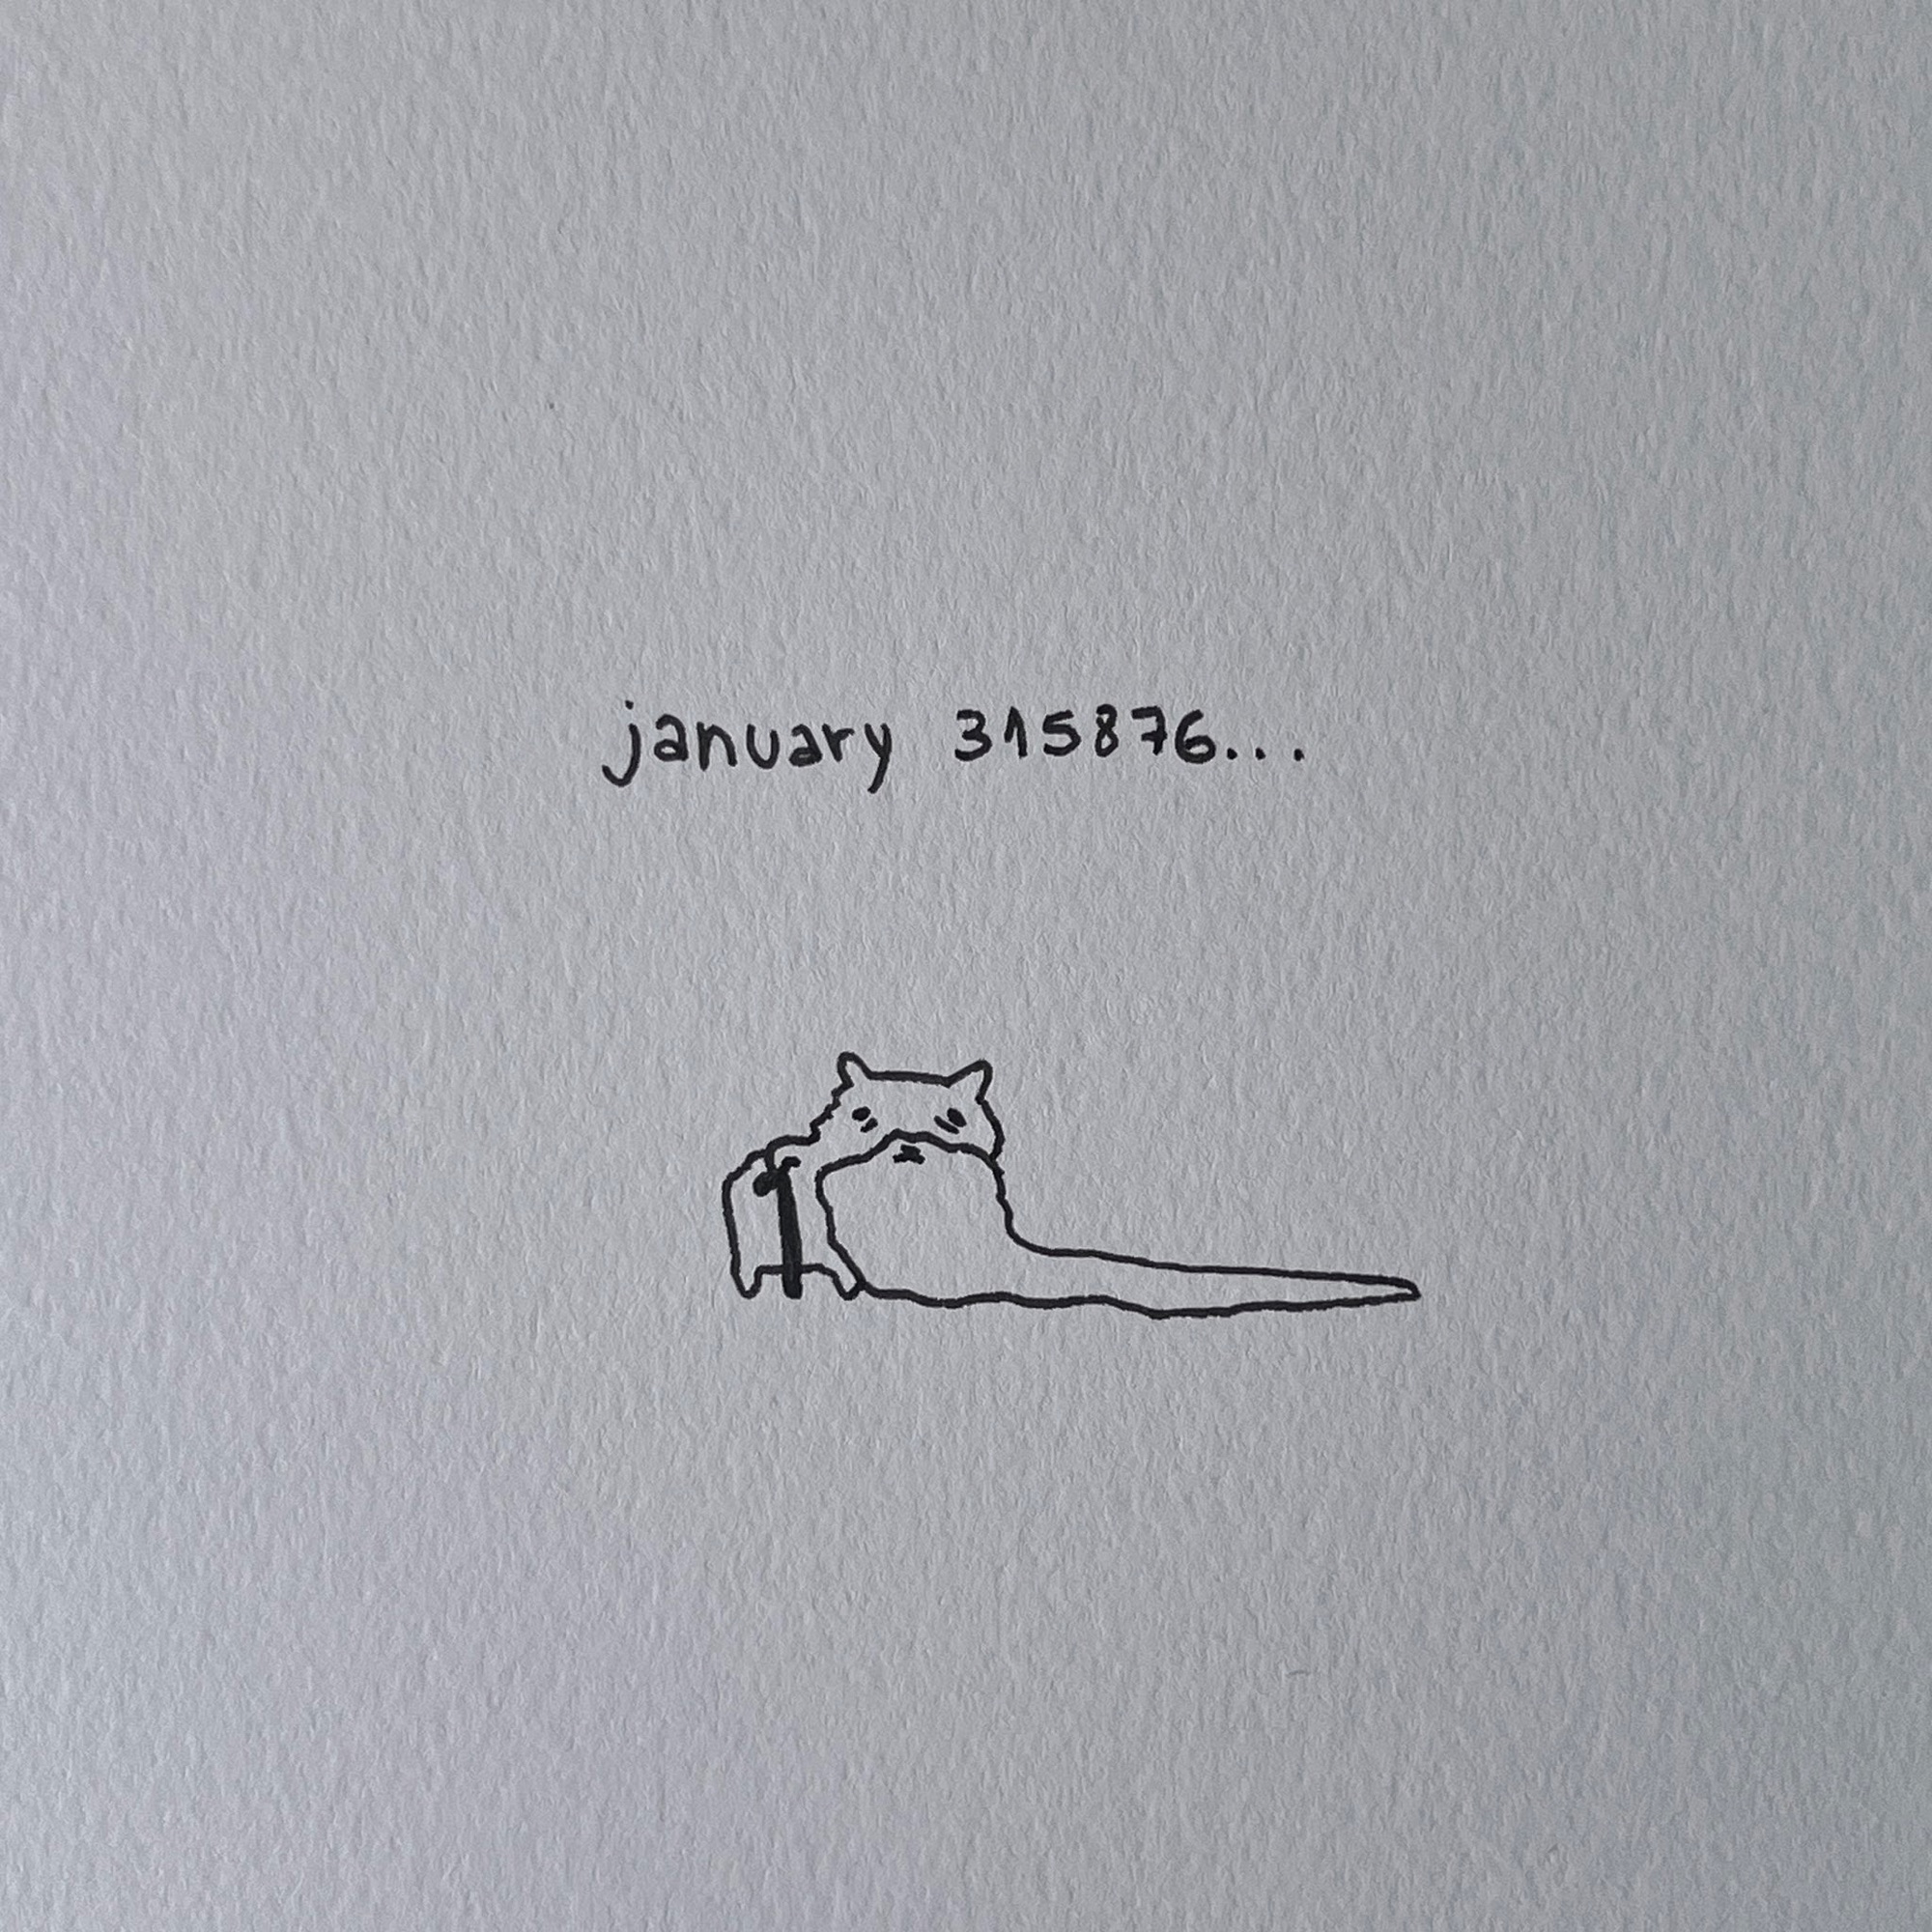 january 315876...